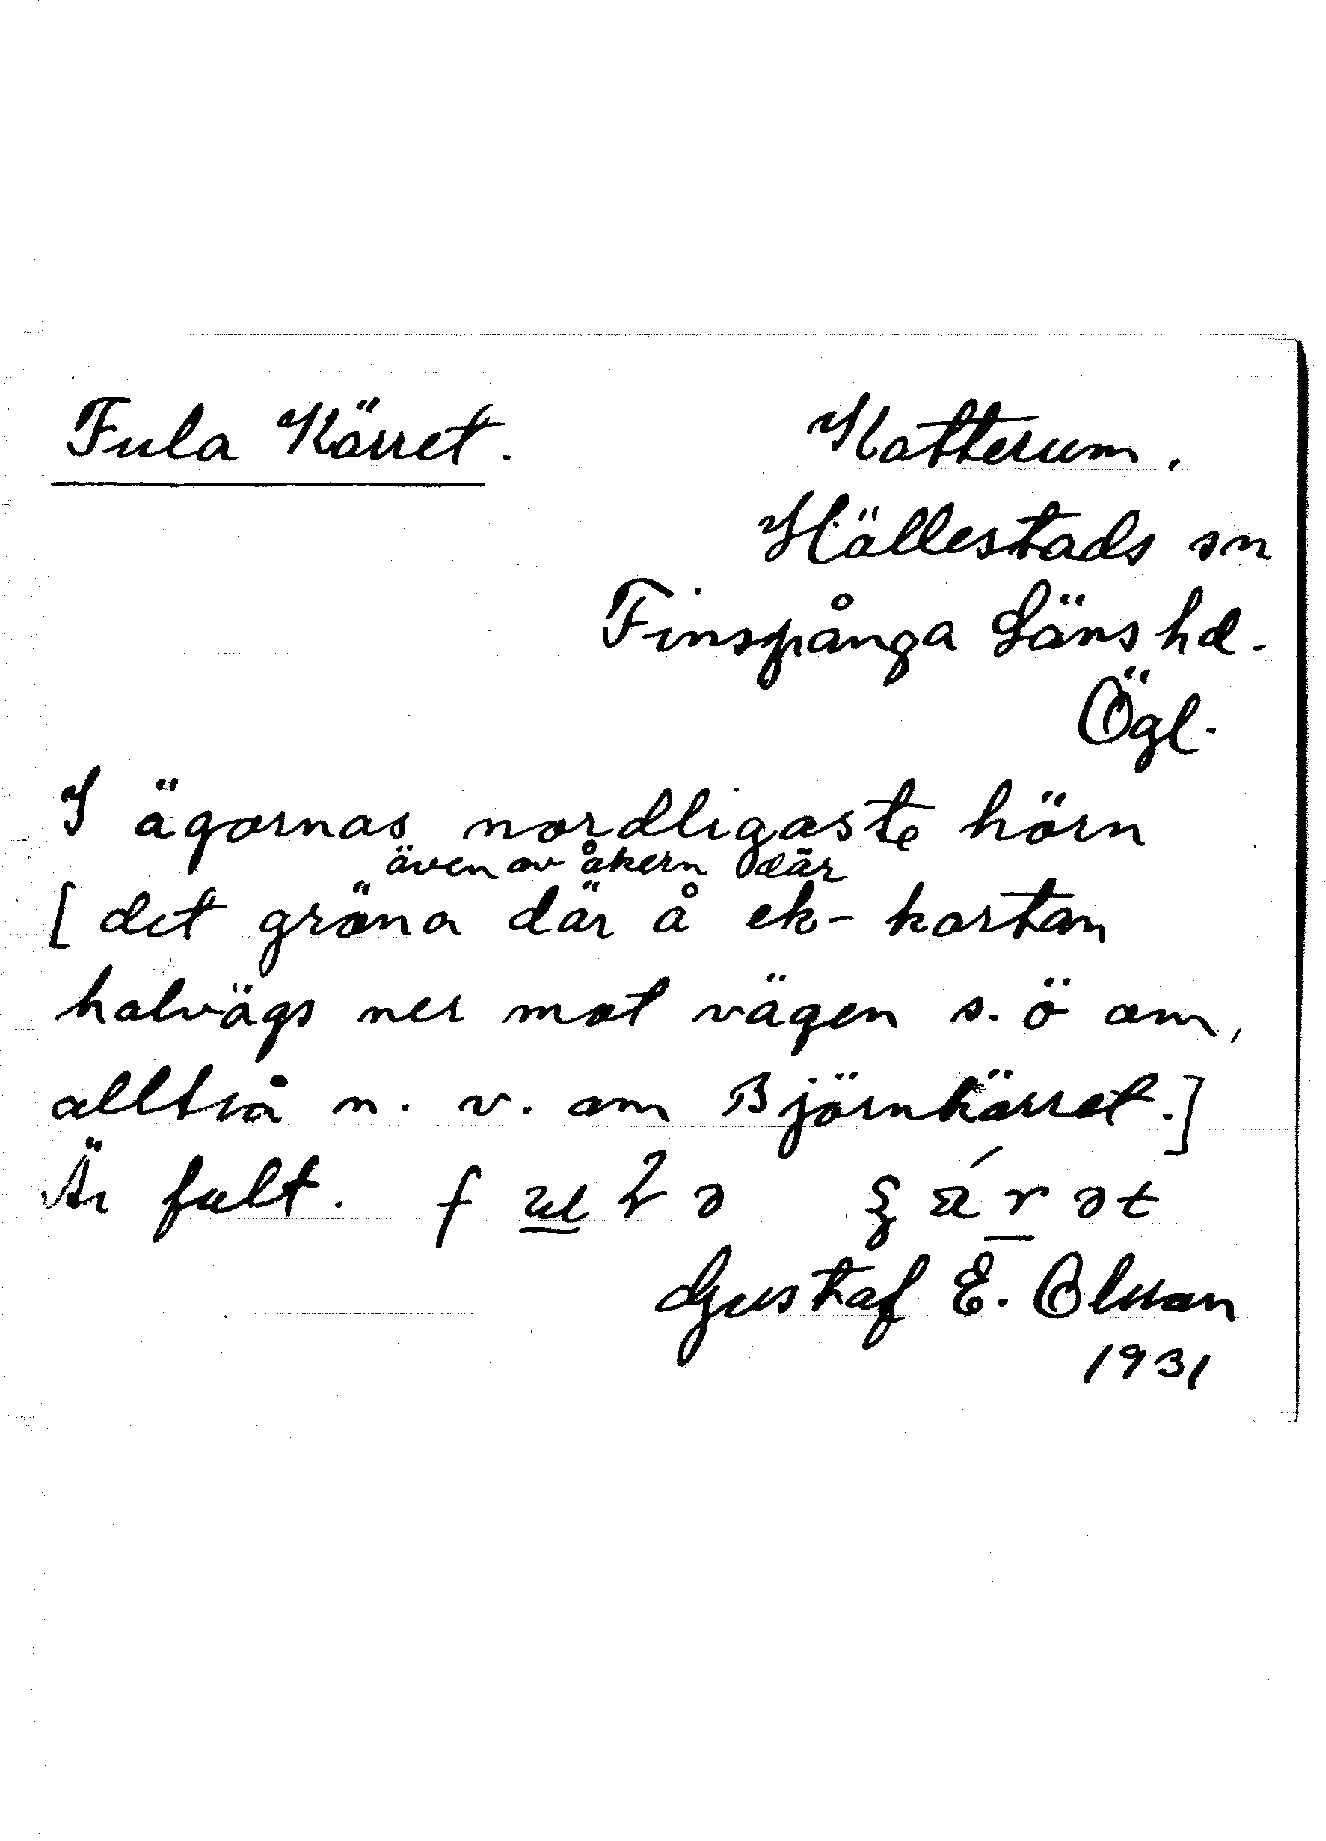 Fula Kärret.
Katterum.
Hällestads sn
Finspånga Läns hd.
Ögl.
I ägornas nordligaste hörn
även av åkern där
[det gröna där å ek-kartan
halvägs ner mot vägen s.ö om,
alltså n.v. om Björnkärret.]
Är fult.
Gustaf E. Olsson
1931